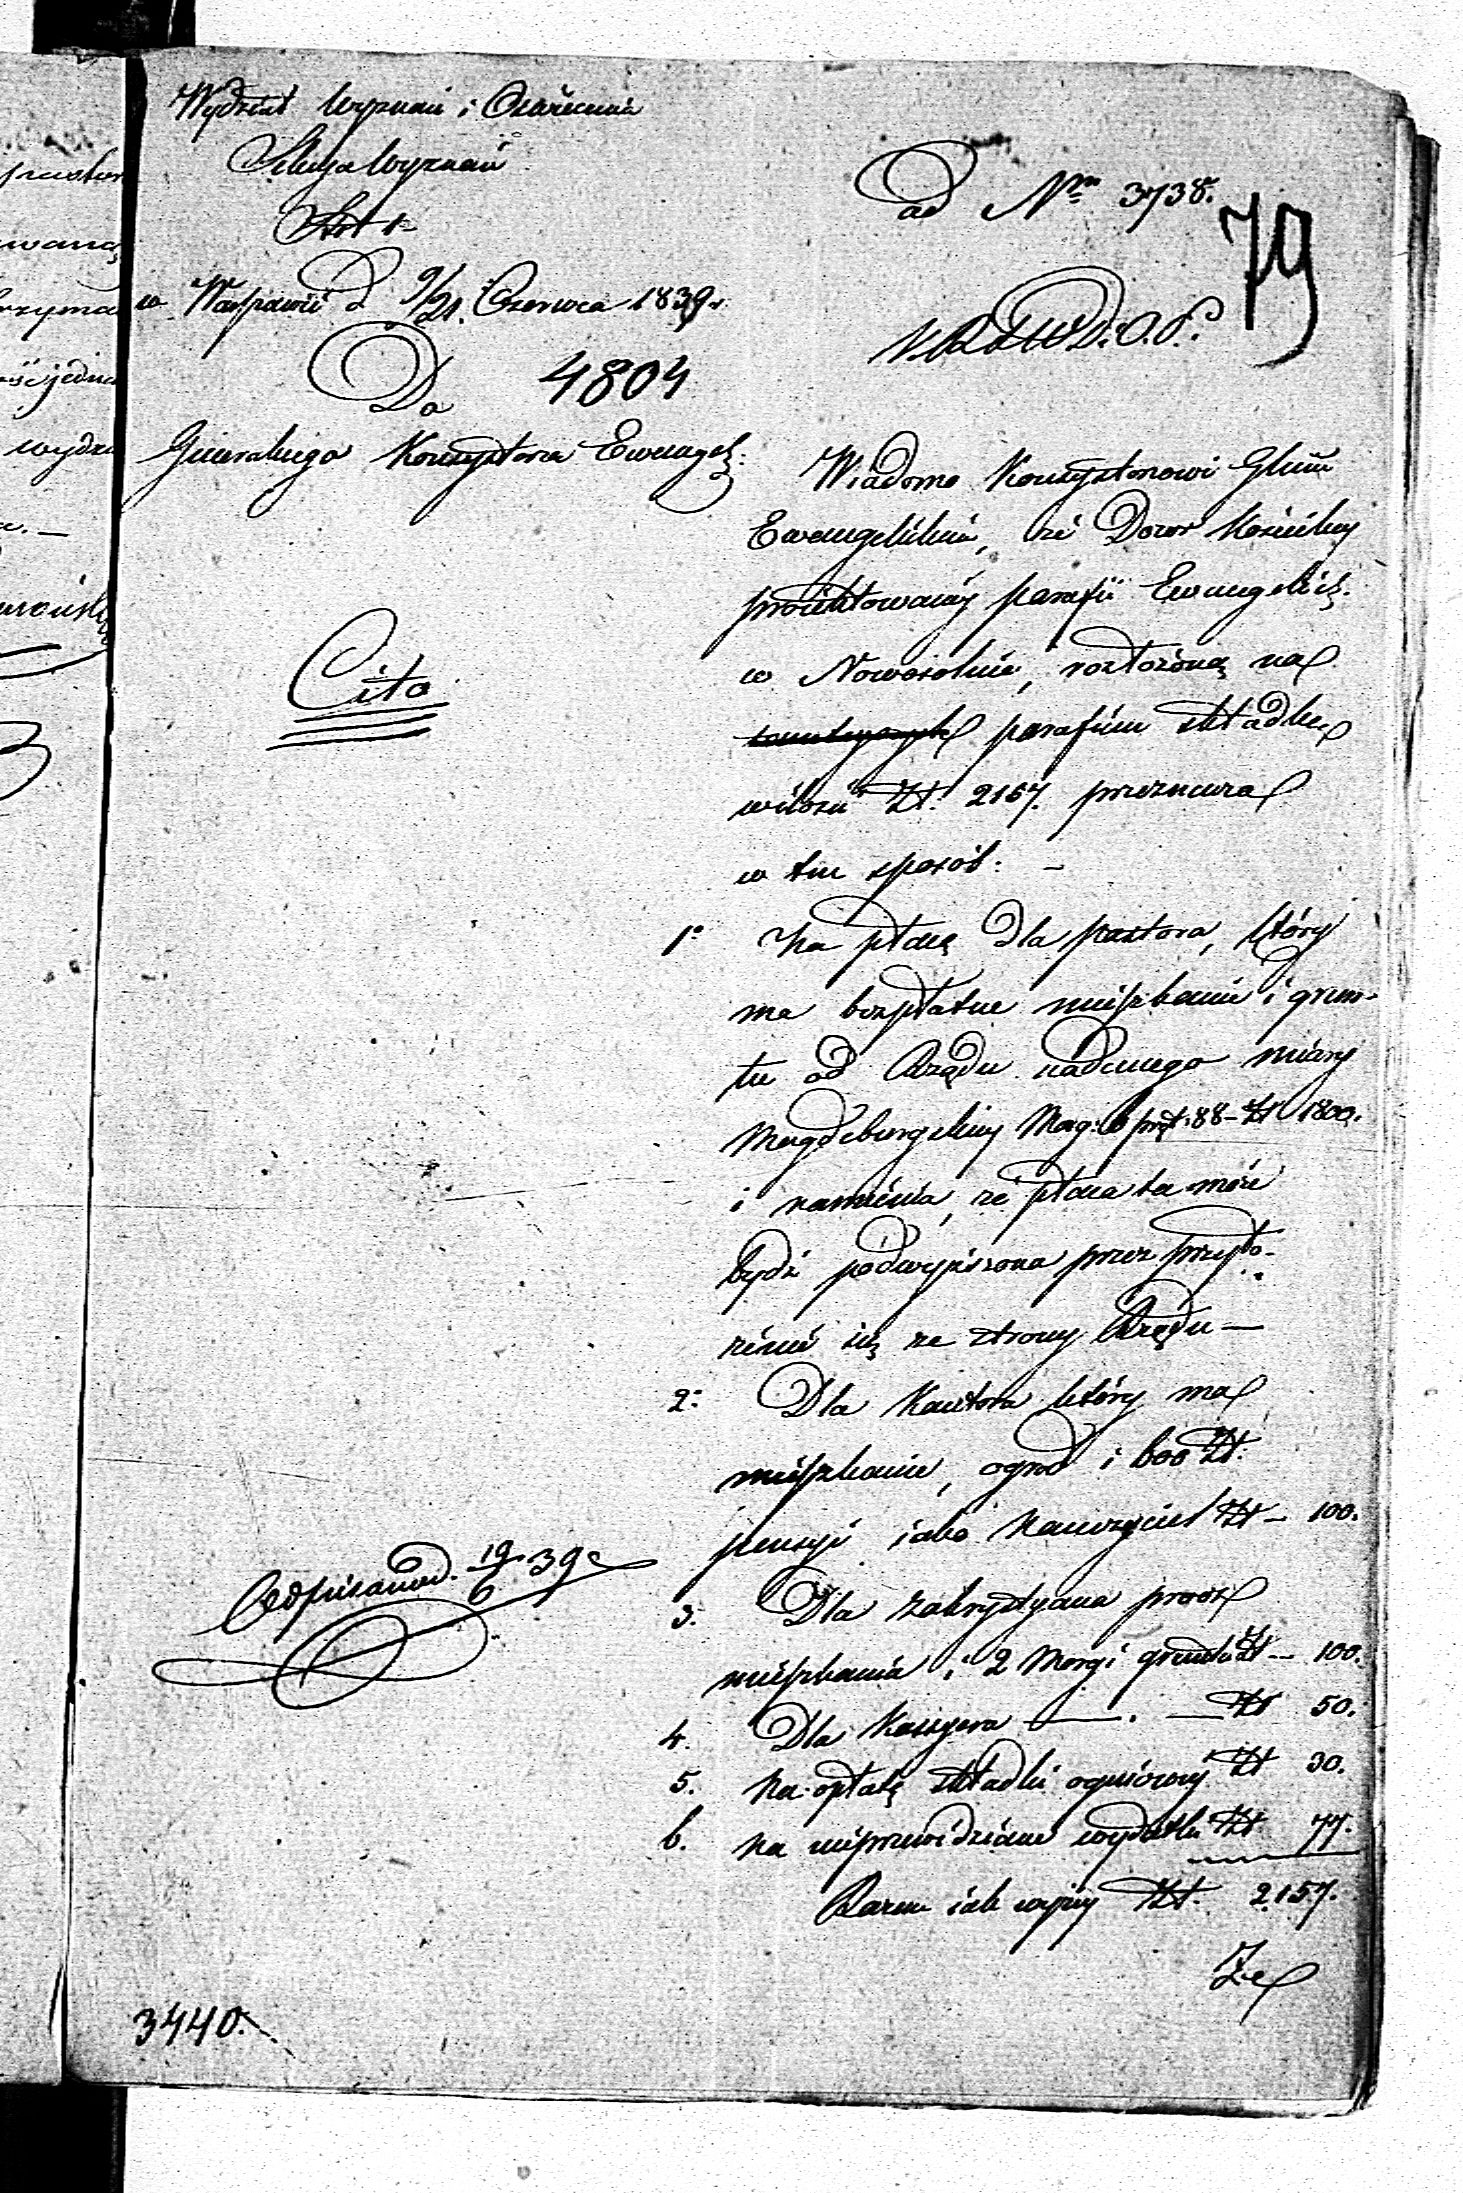 Wydział Wyznań i Oświecenia
Sekcya Wyznań
w Warszawie d 9/21. Czerwca 1839 r.
Do 4804
Generalnego Konsystorza Ewangel:
Cito
Odpisano d. 19/6 39
3440.
ad Nrm 3738.
79
K.R.S.W.D.i.O.P.
Wiadomo Konsystorzowi Glnu
Ewangelikiu, że Dozor Kościelny
proiektowanéy parafii Ewangelick:
w Nowosolnie, rozłożoną na
parafian składkę
w ilości Zł. 2157. przeznacza
w ten sposób: -
1o Na płacę dla pastora, który
ma bezpłatne mieszkanie i grun-
tu od Rządu nadanego miary
Magdeburgskiey Mag: 6 pręt: 88 - Zł 1800.
i namienia, że płaca ta może
bydź podwyższona przez przyło-
żenie się ze strony Rządu —
2o Dla Kantora który ma
mieszkanie, ogrod i 600 Zł.
pensyi iako Nauczyciel Zł - 100.
3. Dla Zakrystyana procz
mieszkania i 2 Morgi gruntu Zł - 100.
4. Dla Kassyera — . — Zł 50.
5. Na opłatę składki ogniowey Zł 30.
6. Na nieprzewidziane wydatki Zł 77.
Razem iak wyżey Zł. 2157.
Ze